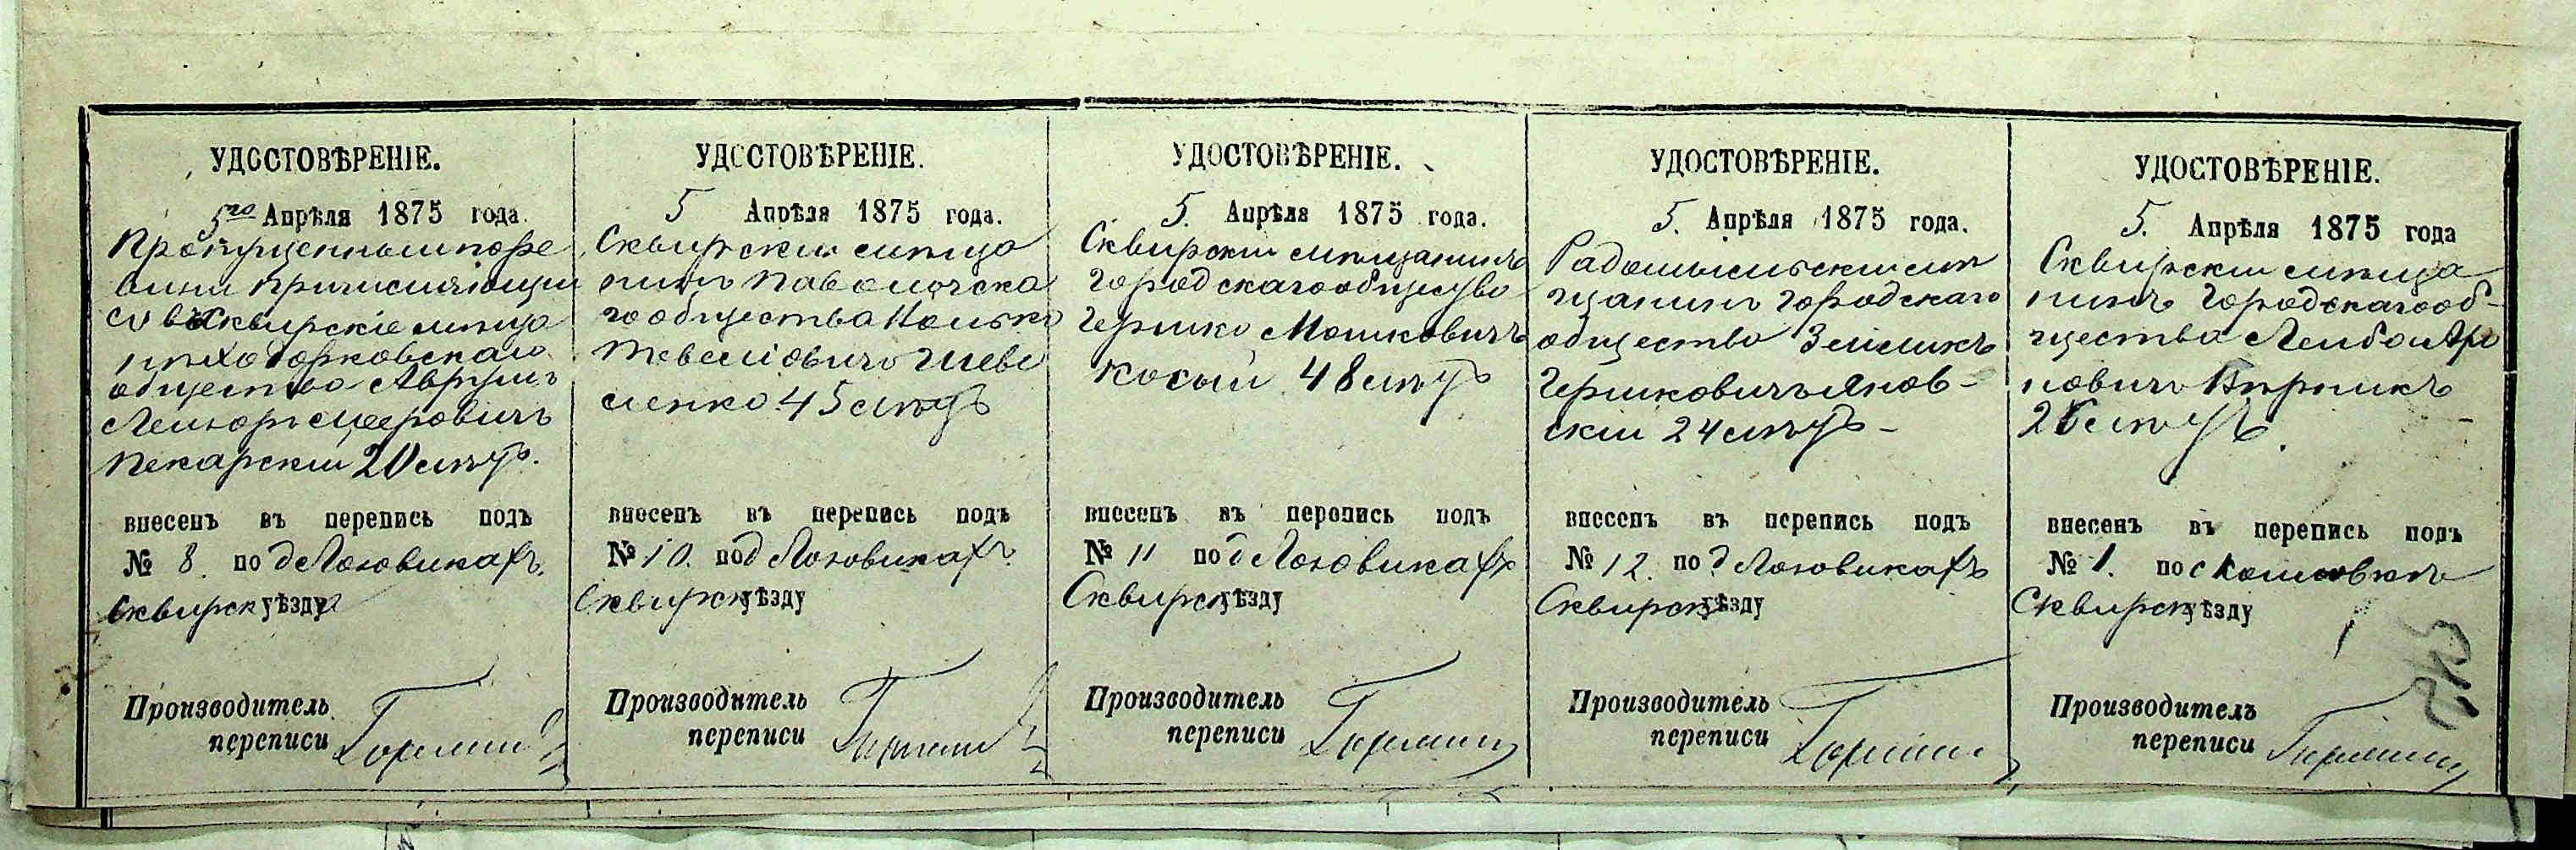 УДОСТОВѢРЕНІЕ.
5го Апрѣля 1875 года.
Пропущенный по ре
визии причисляющий
ся въ Сквирскіе мѣща
не Ходорковскаго
общества Аврумъ
Лейзоръ Мееровичъ
Пекарскій 20 лѣтъ.
внесенъ въ перепись подъ
№ 8. по д Лозовикахъ.
Сквирск уѣзду
Производитель
переписи
УДОСТОВѢРЕНІЕ.
5 Апрѣля 1875 года.
Сквирскій мѣща
нинъ Паволочска
го общества
Тевелiовичъ Шев
ченко 45 лѣтъ
внесенъ въ перепись подъ
№ 10. по д Лозовикахъ.
Сквирск уѣзду
Производитель
переписи
УДОСТОВѢРЕНІЕ.
5. Апрѣля 1875 года.
Сквирскій мѣщанинъ
городскаго общество
Гершко Мошковичъ
Косый 48 лѣтъ
внесенъ въ перепись подъ
№ 11 по д Лозовикахъ
Сквирск уѣзду
Производитель
переписи
УДОСТОВѢРЕНІЕ.
5. Апрѣля 1875 года.
Радомысльскій мѣ
щанинъ городскаго
общество Зейликъ
Гершковичъ Янов-
скій 24 лѣтъ -
внесенъ въ перепись подъ
№ 12. по д Лозовикахъ
Сквирск уѣзду
Производитель
переписи
УДОСТОВѢРЕНІЕ.
5. Апрѣля 1875 года
Сквирскій мѣща
нинъ Городскаго об-
щества Лейба Ар
новичъ Бѣрникъ
26 лѣтъ.
внесенъ въ перепись подъ
№ 1. по с
Сквирск уѣзду
Производитель
переписи